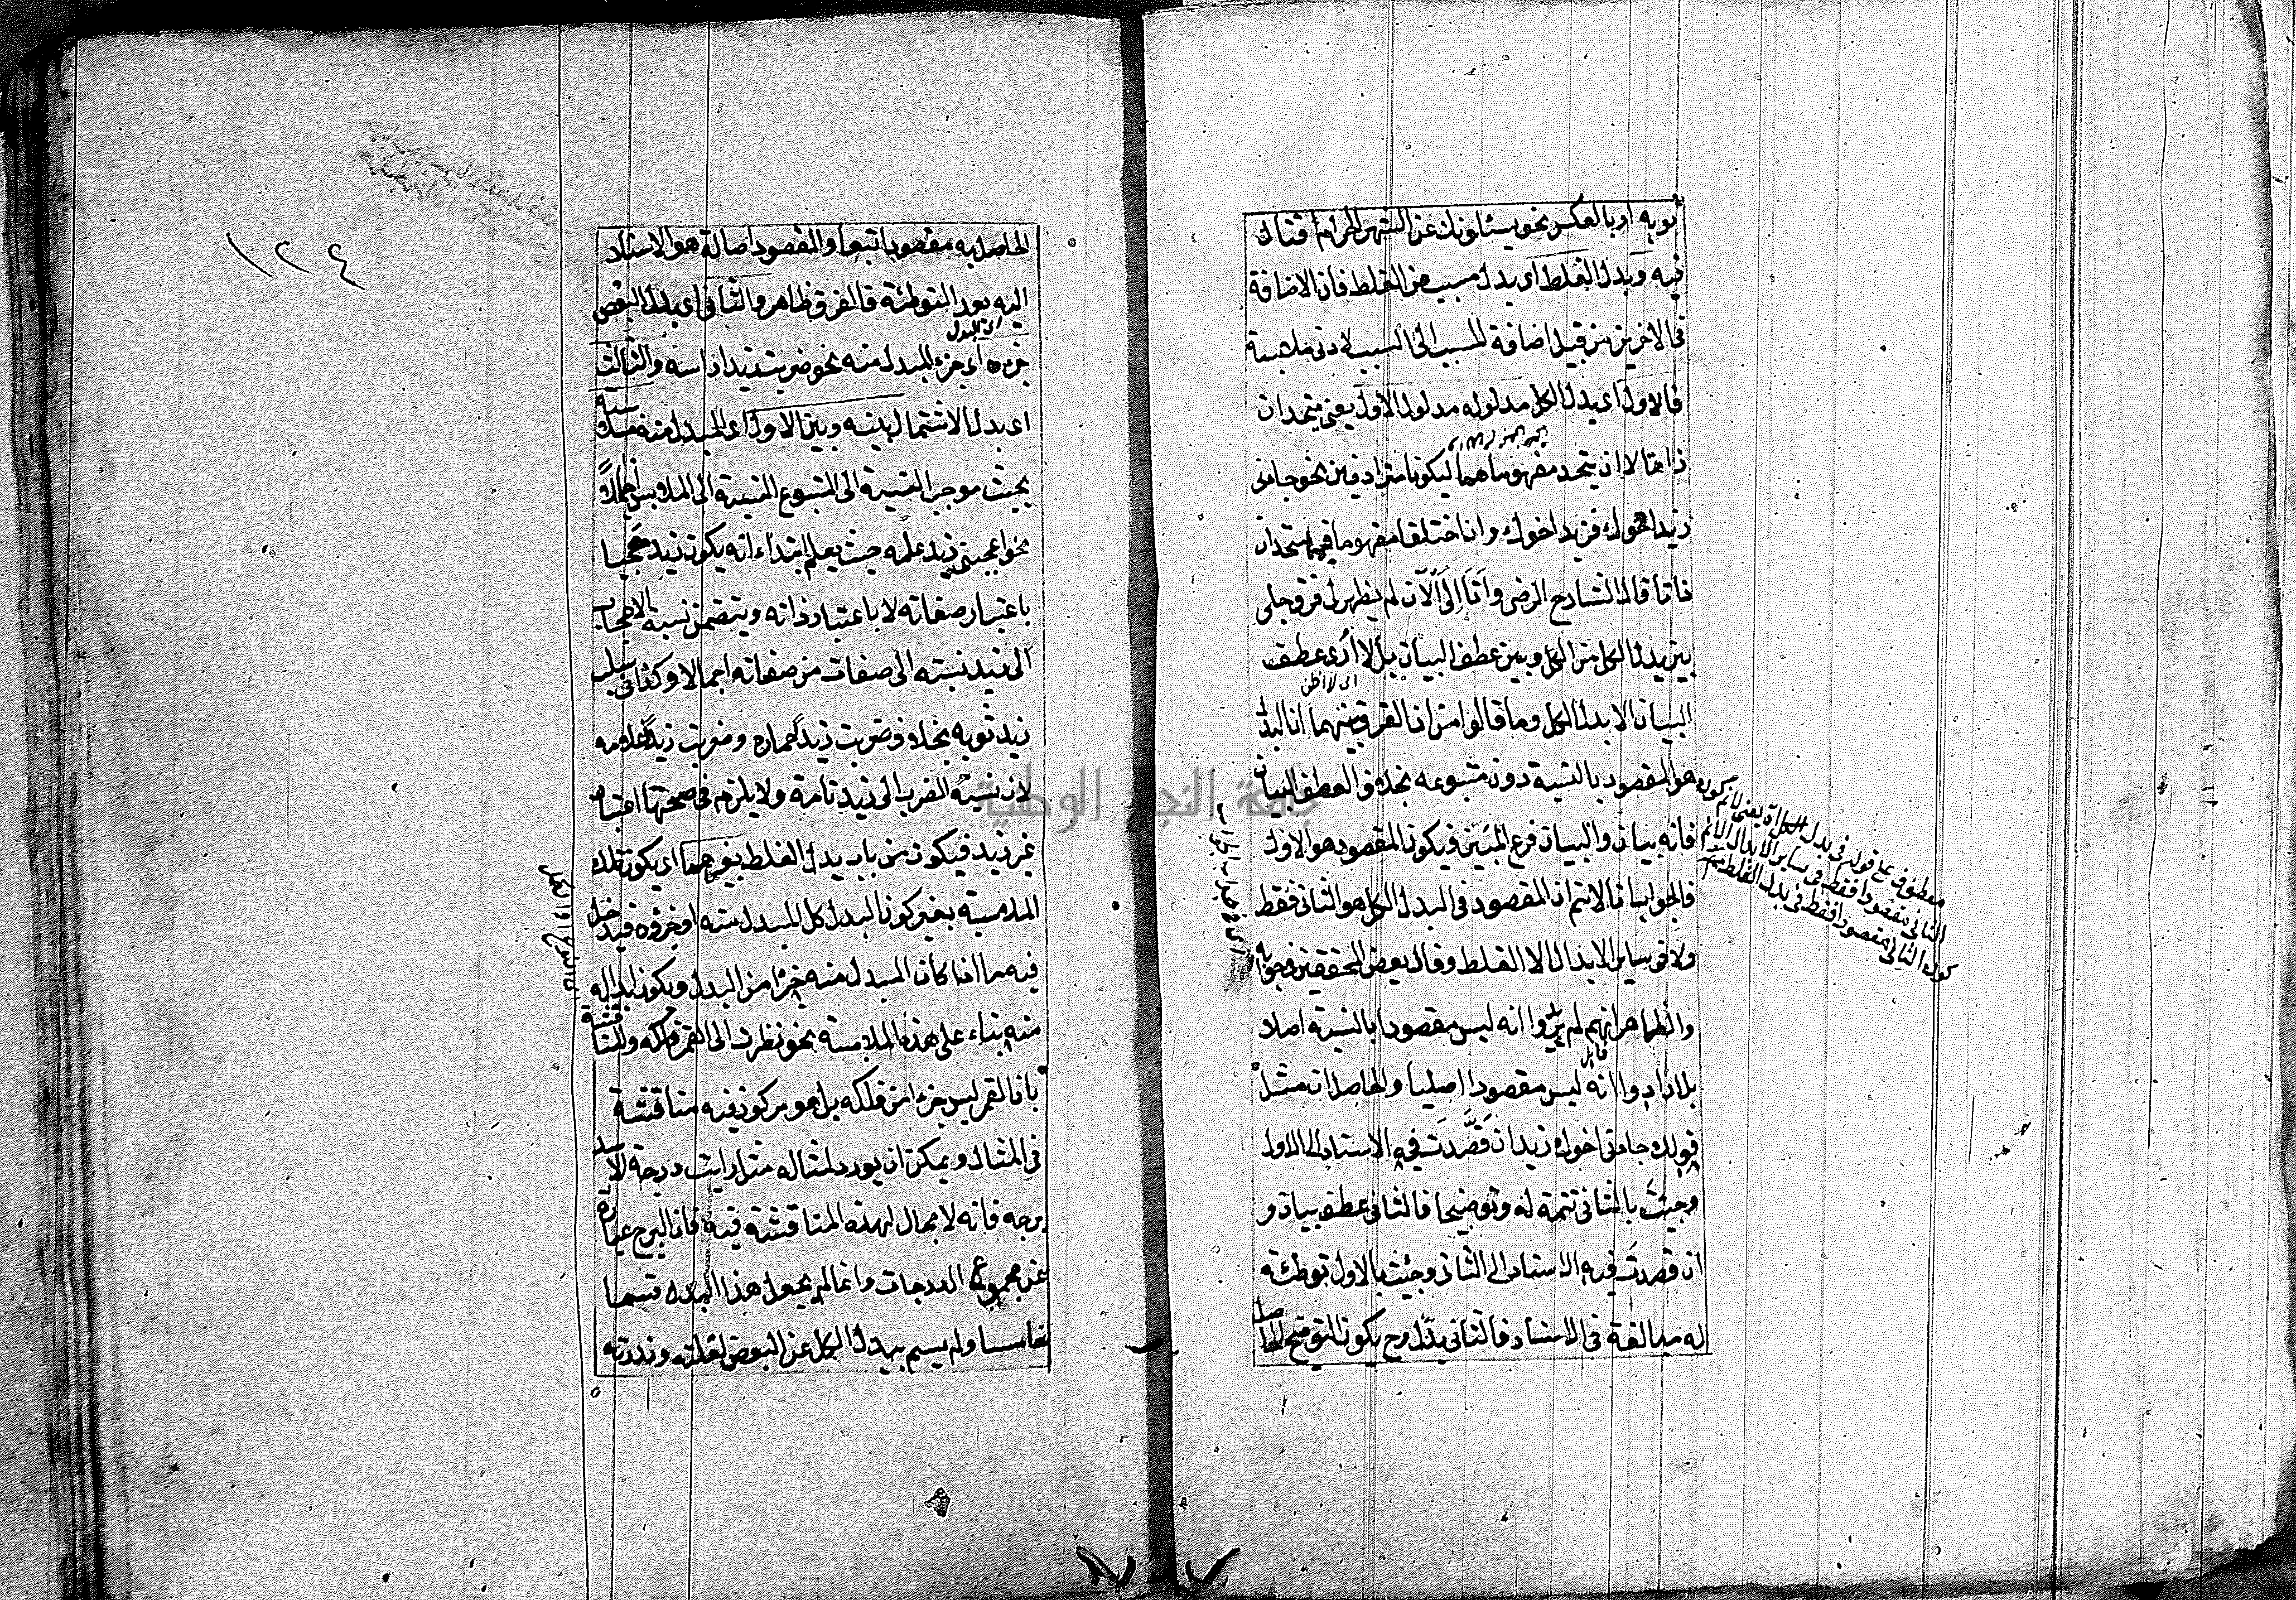 ثوبه او بالعكس نحو يسئلونك عن الشهر الحرام قتال
فيه وبدل الغلط اى بدل مسبب عن الغلط فان الاضافة
فى الاخيرين من قبيل اضافة المسبب الى السبب لادنى ملابسة
فالاول اى بدل الكل مدلوله مدلول الاول يعنى يتحدان
ذاتا لا ان يتحد مفهوماهما ليكونا مترادفين نحو جاءنى
زيد اخوك فزيد اخوك وان اختلفا مفهوما فهما متحدان
ذاتا قال الشارح الرضى وانا الى الآن لم يظهر لى فرق جلى
بين بدل الكل من الكل وبين عطف البيان بل لا ارى عطف
اى لا اظن
البيان الا بدل الكل وما قالوا من ان الفرق بينهما ان البدل
هو المقصود بالنسبة دون متبوعه بخلاف العطف البيان
فانه بيان والبيان فرع المبين فيكون المقصود هو الاول
فالجواب انا لا نسلم ان المقصود فى البدل الكل هو الثانى فقط
ولا فى سائر الابدال الا الغلط وقال بعض المحققين فى جوابه
والظاهر انهم لم يريدوا انه ليس مقصودا بالنسبة اصلا
بل ارادوا انه ليس مقصودا اصليا والحاصل ان مثل
قولك جاءنى اخوك زيد ان قصدت فيه الاسناد الى الاول
وجئت بالثانى تتمة له وتوضيحا فالثانى عطف بيان و
ان قصدت فيه الاسناد الى الثانى وجئت بالاول توطئة
له مبالغة فى الاسناد فالثانى بدل وح يكون التوضيح الحاصل
معطوف على قوله فى بدل الكل
الثانى مقصودا فقط فى سائر الابدال
كون الثانى مقصودا فقط فى بدل الغلط
١٢٤
الحاصل به مقصودا تبعا والمقصود اصالة هو الاسناد
اليه بعد التوطئة فالفرق ظاهر والثانى اى بدل البعض
جزءه اى جزء المبدل منه نحو ضربت زيدا راسه والثالث
اى بدل الاشتمال بينه وبين الاول اى المبدل منه ملابسة
بحيث موجب النسبة الى المتبوع النسبة الى الملابس اجمالا
نحو اعجبنى زيد علمه حيث يعلم ابتداء انه يكون زيد معجبا
باعتبار صفاته لا باعتبار ذاته ويتضمن نسبة الاعجاب
الى زيد نسبته الى صفات من صفاته اجمالا وكذا فى سلب
زيد ثوبه بخلاف ضربت زيدا حماره وضربت زيدا غلامه
لان نسبة الضرب الى زيد تامة ولا يلزم فى صحتها اعتبار
غير زيد فيكون من باب بدل الغلط بغيرهما اى يكون تلك
الملابسة بغير كون البدل كل المبدل منه او جزؤه فيدخل
فيه ما اذا كان المبدل منه جزءا من البدل ويكون ابداله
منه بناء على هذه الملابسة نحو نظرت الى القمر فلكه والمناقشة
بان القمر ليس جزءا من فلكه بل هو مركوز فيه مناقشة
فى المثال ويمكن ان يورد لمثاله مثل رايت درجة الاسد
برجه فانه لا مجال لهذه المناقشة فيه فان البرج عبارة
عن مجموع الدرجات وانما لم يجعل هذا البدل قسما
خامسا ولم يسم ببدل الكل عن البعض لقلته وندرته